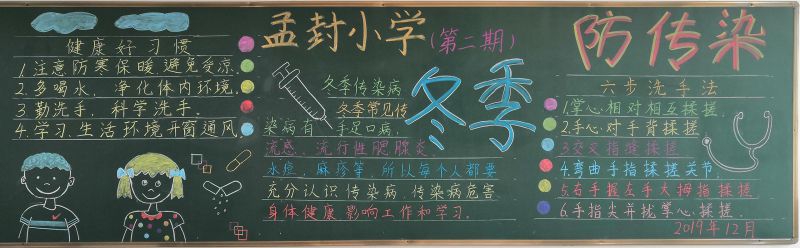 健康好习惯
1.注意防寒保暖,避免受凉.
2.多喝水,净化体内环境.
3.勤洗手,科学洗手.
4.学习、生活环境开窗通风
孟封小学(第二期)
冬季
冬季传染病
冬季常见传
染病有:手足口病,
流感、流行性腮腺炎、
水痘、麻疹等,所以每个人都要
充分认识传染病,传染病危害
身体健康,影响工作和学习.
防传染
六步洗手法
1.掌心相对相互揉搓.
2.手心对手背揉搓
3.交叉指缝揉搓
4.弯曲手指揉搓关节.
5.右手握左手大拇指揉搓
6.手指尖并拢掌心揉搓.
2019年12月